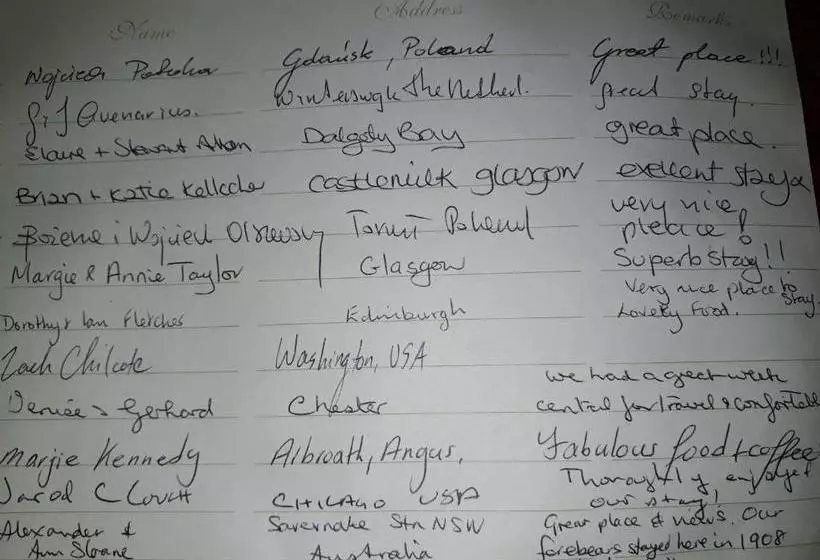 Name Address Remarks
Gdańsk, Poland Great place!!!
G & J Quenarius. Winterswijk the Netherl. great stay.
Elaine + Stewart Aitken Dalgety Bay great place.
Brian + Katie Kellcche Castlemilk glasgow exellent stay
Bożena i Wojciech Toruń Poland very nice
pleace!
Margie & Annie Taylor Glasgow Superb stay!!
Dorothy & Ian Fletcher Edinburgh Very nice place to stay.
Lovely food.
Zach Chilcote Washington, USA
we had a great week
Denise & Gerhard Chester central for travel & comfortable
Marjie Kennedy Arbroath, Angus. Fabulous food + coffee
Jarod C CHICAGO USA Thoroughly enjoyed
our stay!
Alexander & Savernake Stn NSW Great place & views. Our
Ann Sloane Australia forebears stayed here in 1908